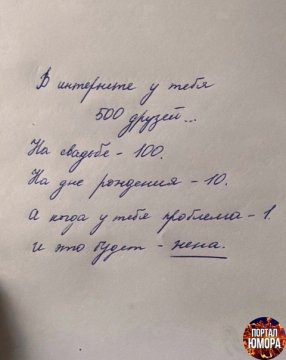 В интернете у тебя
500 друзей...
На свадьбе - 100.
На дне рождения - 10.
А когда у тебя проблема - 1.
И это будет - жена.
ПОРТАЛ
ЮМОРА